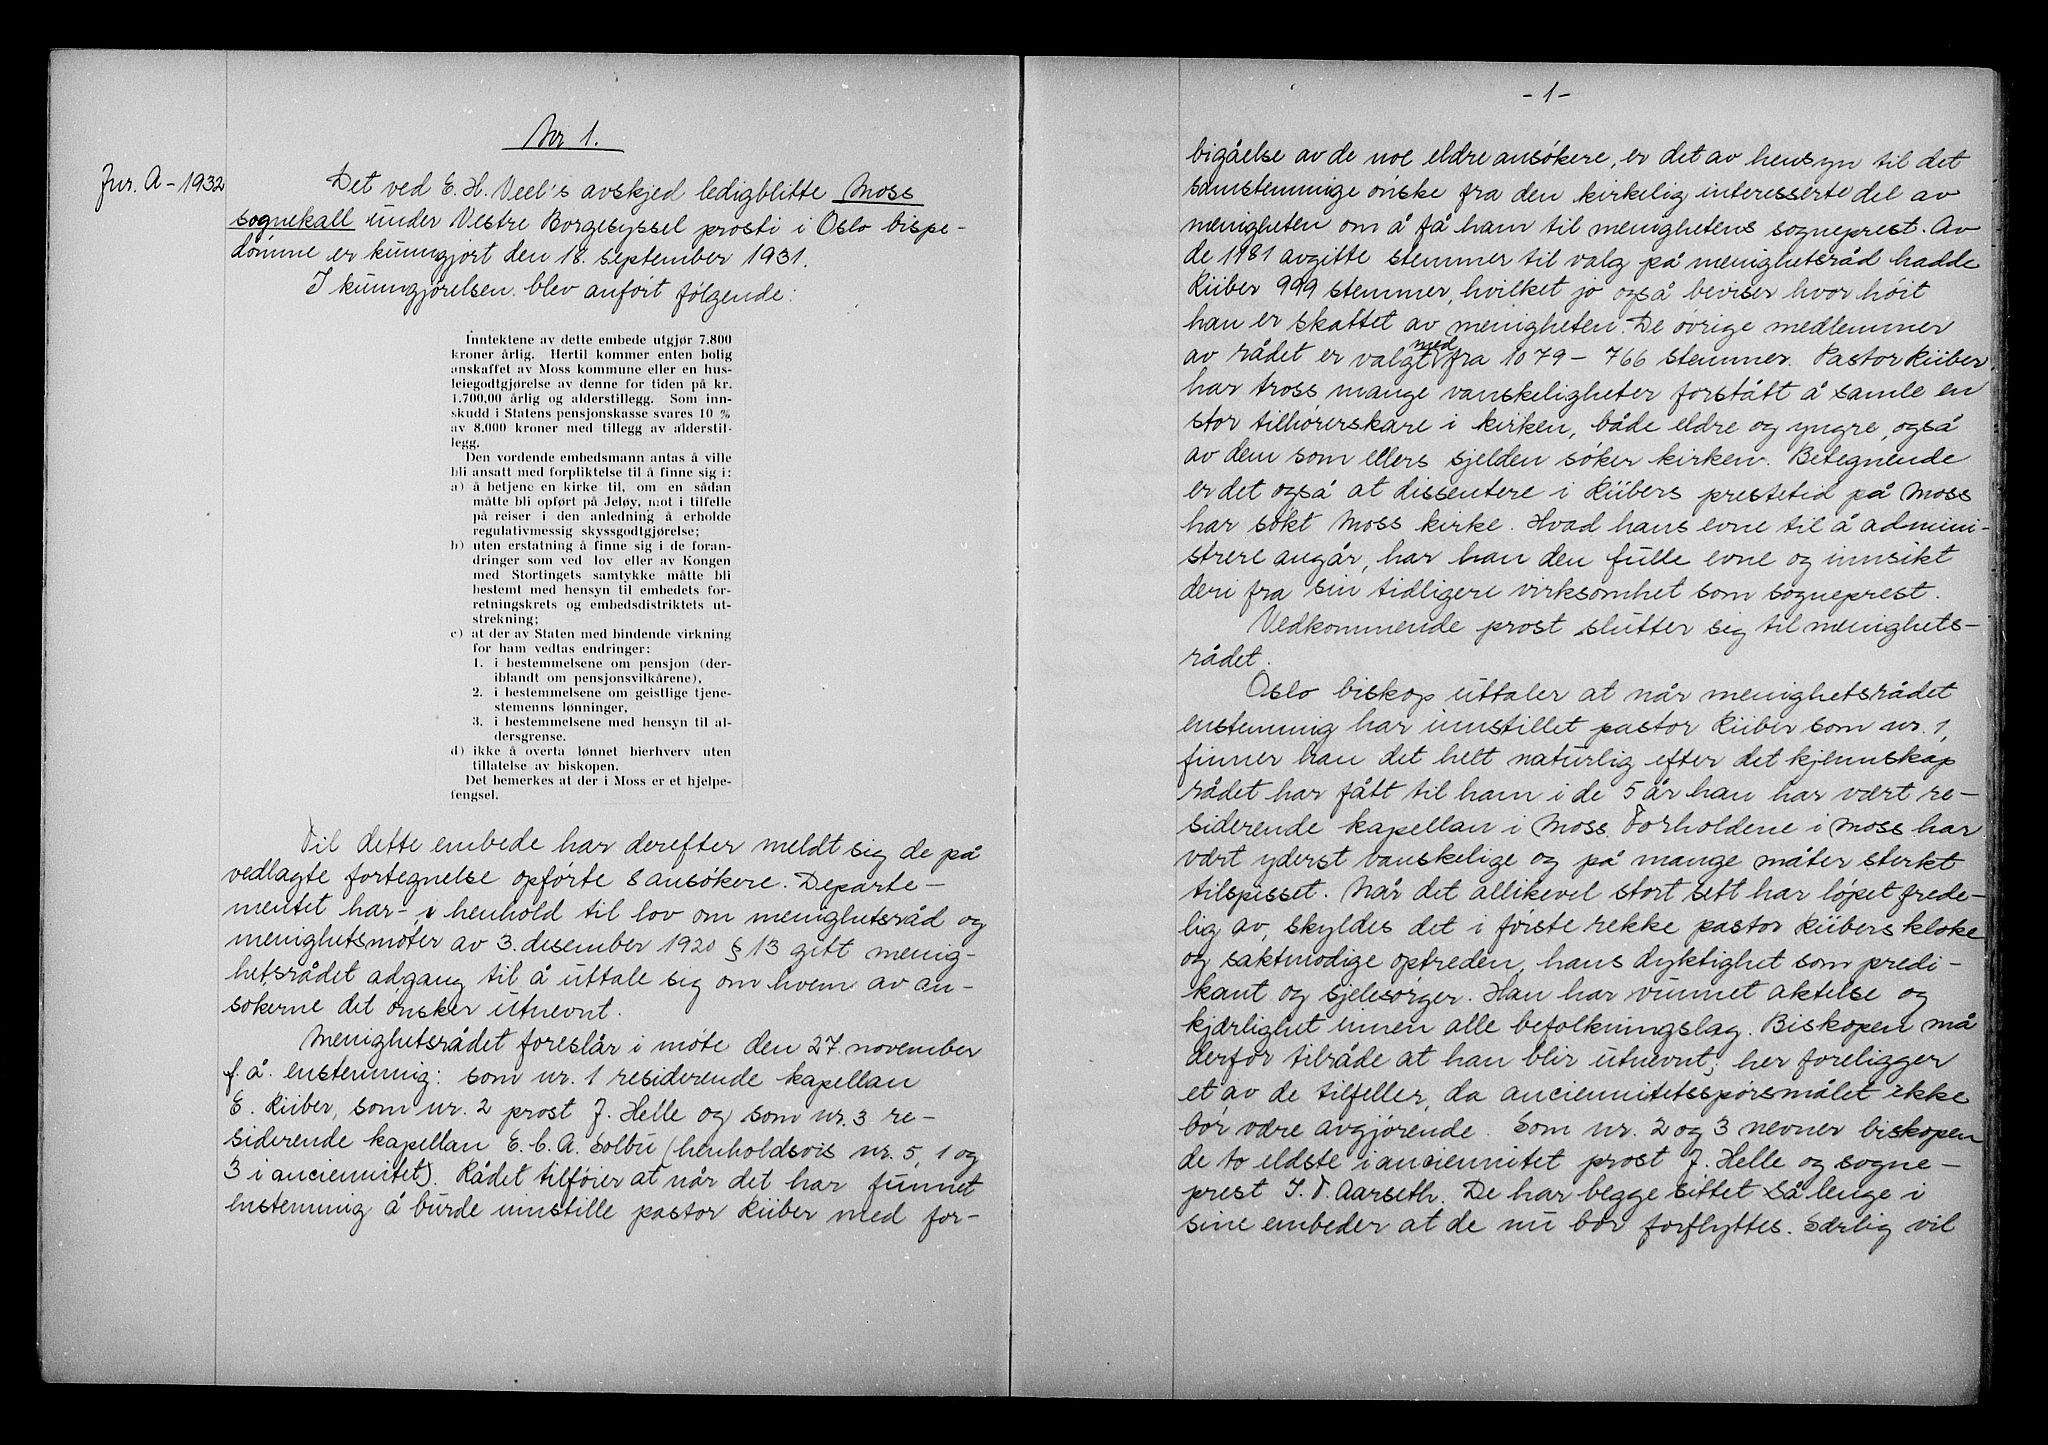 Nr 1.
Jnr. A - 1932
Det ved E. H. Veel's avskjed ledigblitte Moss
sognekall under Vestre Borgesyssel prosti i Oslo bispe-
dømme er kunngjort den 18. september 1931.
I kunngjørelsen blev anført følgende:
Inntektene av dette embede utgjør 7.800
kroner årlig. Hertil kommer enten bolig
anskaffet av Moss kommune eller en hus-
leiegodtgjørelse av denne for tiden på kr.
1.700,00 årlig og alderstillegg. Som inn-
skudd i Statens pensjonskasse svares 10 %
av 8.000 kroner med tillegg av alderstil-
legg.
Den vordende embedsmann antas å ville
bli ansatt med forpliktelse til å finne sig i:
a) å betjene en kirke til, om en sådan
måtte bli opført på Jeløy, mot i tilfelle
på reiser i den anledning å erholde
regulativmessig skyssgodtgjørelse;
b) uten erstatning å finne sig i de foran-
dringer som ved lov eller av Kongen
med Stortingets samtykke måtte bli
bestemt med hensyn til embedets for-
retningskrets og embedsdistriktets ut-
strekning;
c) at der av Staten med bindende virkning
for ham vedtas endringer:
1. i bestemmelsene om pensjon (der-
iblandt om pensjonsvilkårene),
2. i bestemmelsene om geistlige tjene-
stemenns lønninger,
3. i bestemmelsene med hensyn til al-
dersgrense.
d) ikke å overta lønnet bierhverv uten
tillatelse av biskopen.
Det bemerkes at der i Moss er et hjelpe-
fengsel.
Til dette embede har derefter meldt sig de på
vedlagte fortegnelse opførte 8 ansøkere. Departe-
mentet har i henhold til lov om menighetsråd og
menighetsmøter av 3. desember 1920 § 13 gitt menig-
hetsrådet adgang til å uttale sig om hvem av an-
søkerne det ønsker utnevnt.
Menighetsrådet foreslår i møte den 27. november
f. å. enstemmig: som nr. 1 residerende kapellan
E. Riiber, som nr. 2 prost J. Helle og som nr. 3 re-
siderende kapellan E. C. A. Solbu (henholdsvis nr. 5, 1 og
3 i anciennitet). Rådet tilføier at når det har funnet
enstemmig å burde innstille pastor Riiber med for-
- 1 -
bigåelse av de noe eldre ansøkere, er det av hensyn til det
samstemmige ønske fra den kirkelig interesserte del av
menigheten om å få ham til menighetens sogneprest. Av
de 1981 avgitte stemmer til valg på menighetsråd hadde
Riiber 999 stemmer, hvilket jo også beviser hvor høit
han er skattet av menigheten. De øvrige medlemmer
av rådet er valgt med fra 1079 - 766 stemmer. Pastor Riiber
har tross mange vanskeligheter forstått å samle en
stor tilhørerskare i kirken, både eldre og yngre, også
av dem som ellers sjelden søker kirken. Betegnende
er det også at dissentere i Riibers prestetid på Moss
har søkt Moss kirke. Hvad hans evne til å admini-
strere angår, har han den fulle evne og innsikt
deri fra sin tidligere virksomhet som sogneprest.
Vedkommende prost slutter sig til menighets-
rådet.
Oslo biskop uttaler at når menighetsrådet
enstemmig har innstillet pastor Riiber som nr. 1,
finner han det helt naturlig efter det kjennskap
rådet har fått til ham i de 5 år han har vært re-
siderende kapellan i Moss. Forholdene i Moss har
vært yderst vanskelige og på mange måter sterkt
tilspisset. Når det allikevel stort sett har løpet frede-
lig av, skyldes det i første rekke pastor Riibers kloke
og saktmodige optreden, hans dyktighet som predi-
kant og sjelesørger. Han har vunnet aktelse og
kjærlighet innen alle befolkningslag. Biskopen må
derfor tilråde at han blir utnevnt; her foreligger
et av de tilfeller, da anciennitetsspørsmålet ikke
bør være avgjørende. Som nr. 2 og 3 nevner biskopen
de to eldste i anciennitet prost J. Helle og sogne-
prest I. T. Aarseth. De har begge sittet så lenge i
sine embeder at de nu bør forflyttes. Særlig vil